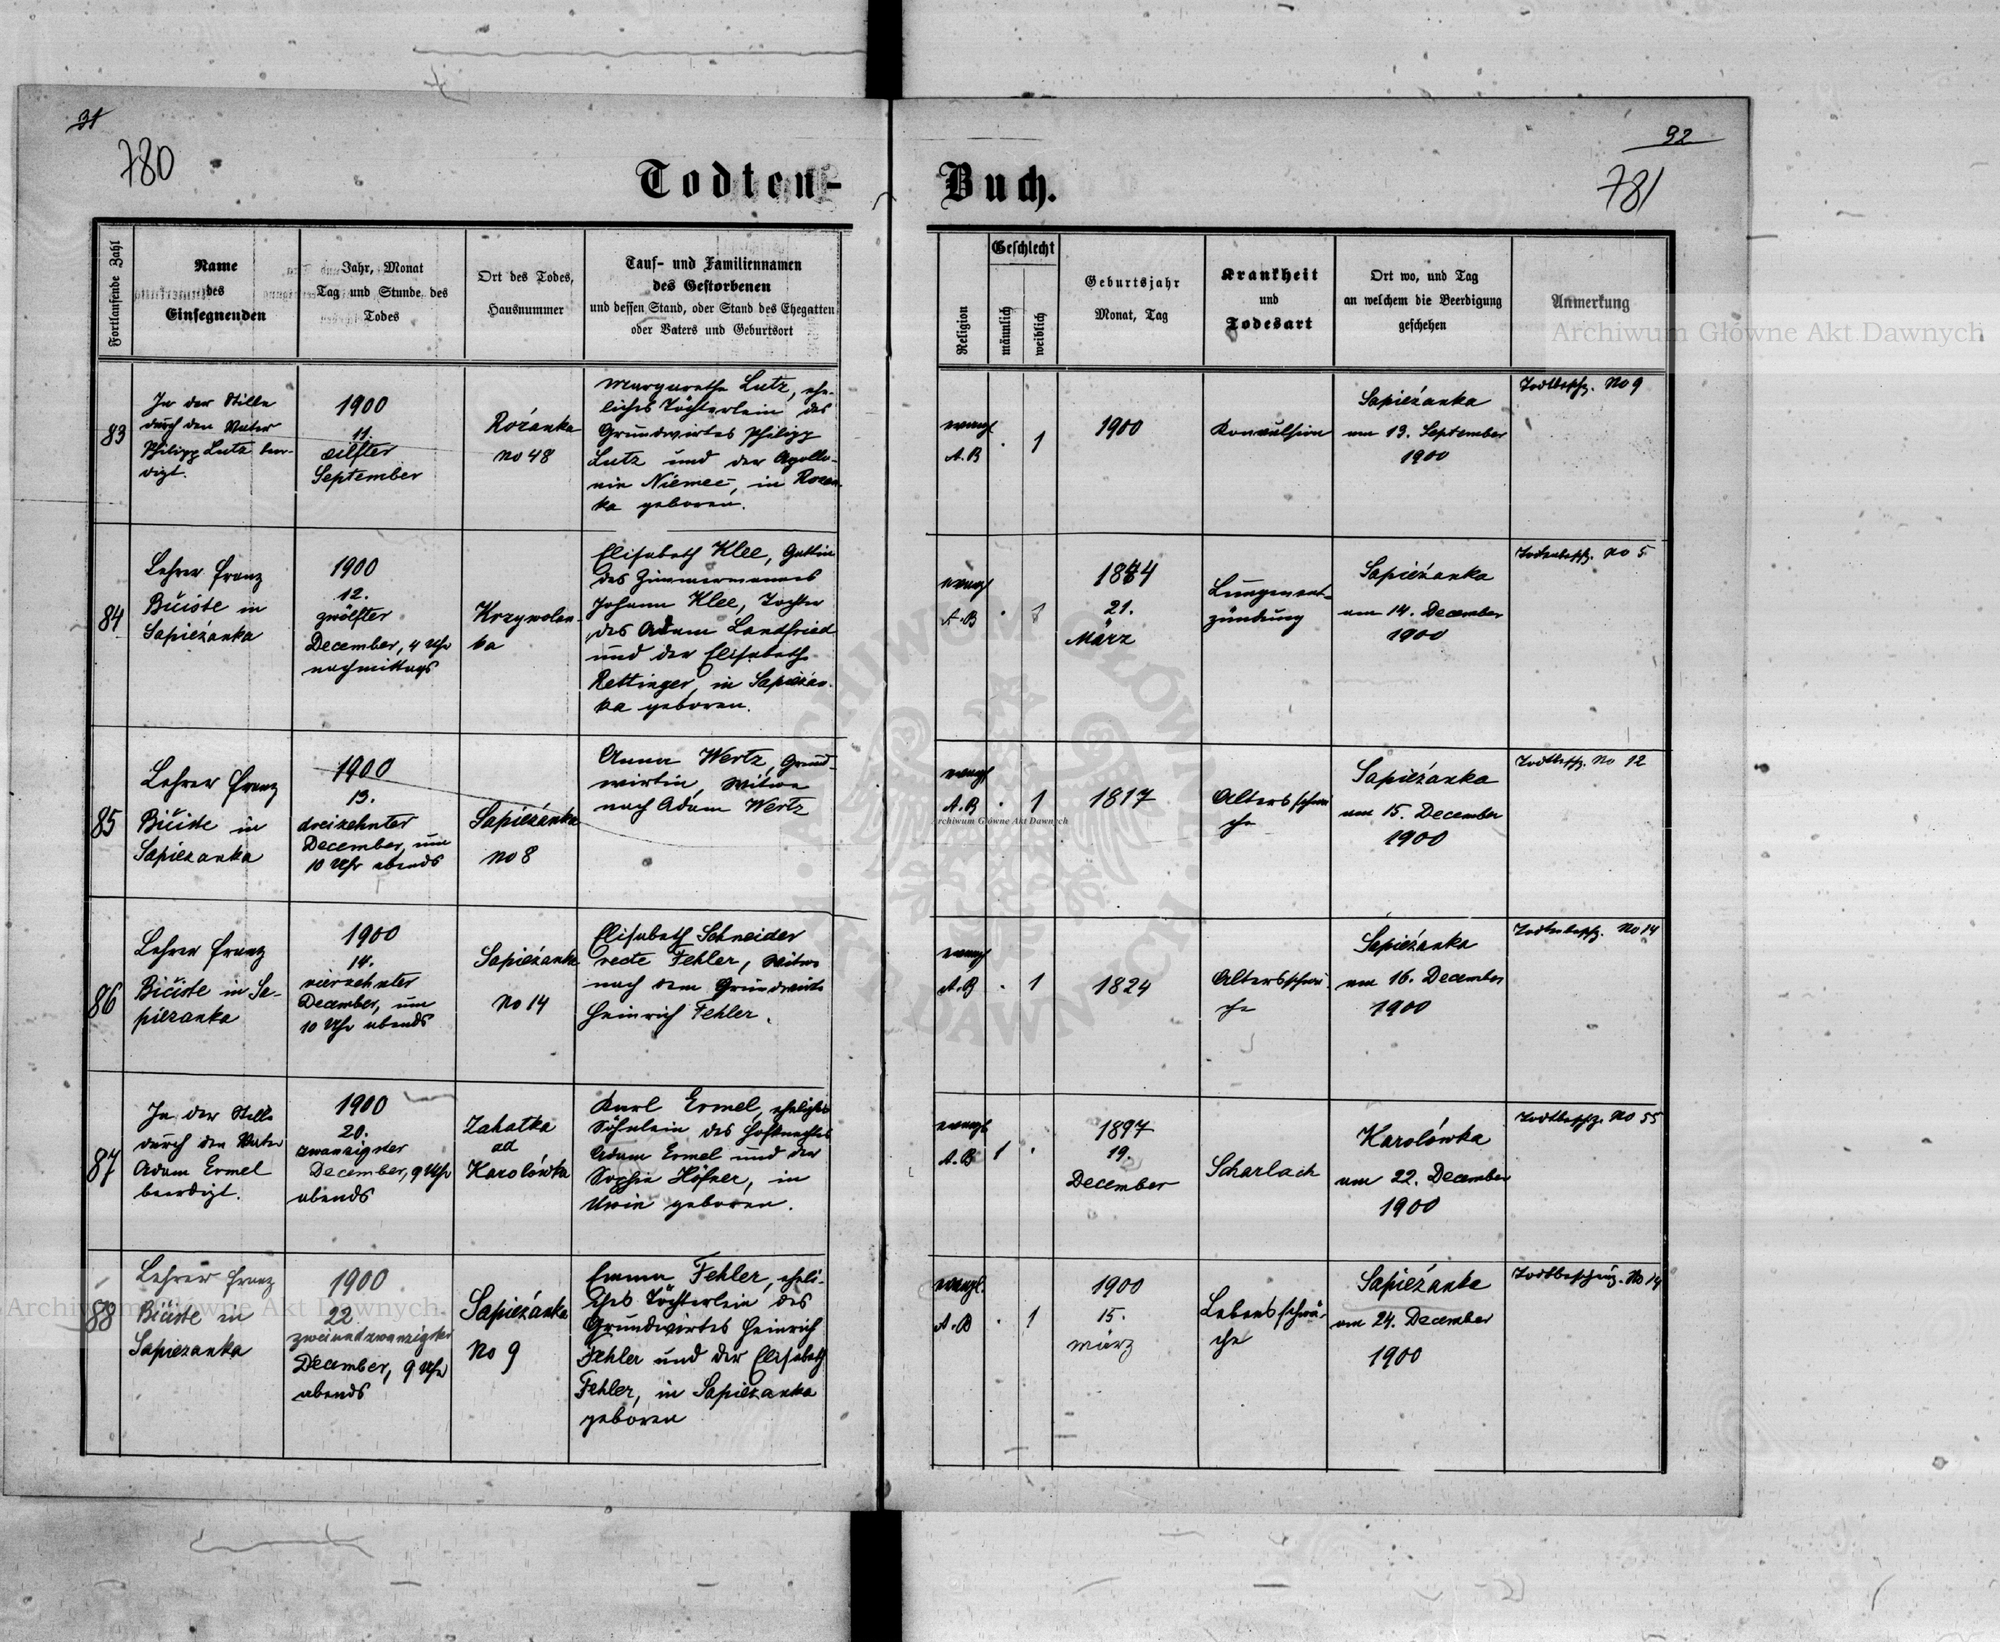 31
780
Todten-
Fortlaufende Zahl
Name
des
Einsegnenden
Jahr, Monat
Tag und Stunde des
Todes
Ort des Todes,
Hausnummer
Tauf- und Familiennamen
des Gestorbenen
und dessen Stand, oder Stand des Ehegatten
oder Vaters und Geburtsort
83
In der Stille
durch den Vater
Philipp Lutz beer-
digt.
1900
11.
eilfter
September
Rożanka
No 48
Margarethe Lutz, ehe-
liches Töchterlein des
Grundwirtes Philipp
Lutz und der Apollo-
nia Niemec, in Rozan-
ka geboren.
84
Lehrer Franz
Bićiste in
Sapieżanka
1900
12.
zwölfter
December, 4 Uhr
nachmittags
Krzywolan-
ka
Elisabeth Klee, Gattin
des Zimmermannes
Johann Klee, Tochter
des Adam Landfried
und der Elisabeth
Rettinger, in Sapieżan-
ka geboren.
85
Lehrer Franz
Bićiste in
Sapiezanka
1900
13.
dreizehnter
December, um
10 Uhr abends
Sapieżanka
No 8
Anna Wertz, Grund-
wirtin, Witwe
nach Adam Wertz
86
Lehrer Franz
Bićiste in Sa-
piezanka
1900
14.
vierzehnter
December, um
10 Uhr abends
Sapieżanka
No 14
Elisabeth Schneider
recte Fehler, Witwe
nach dem Grundwirte
Heinrich Fehler.
87
In der Stille
durch den Vater
Adam Ermel
beerdigt.
1900
20.
zwanzigster
December, 9 Uhr
abends
Zahatka
ad
Karolówka
Karl Ermel, eheliches
Söhnlein des Hofknechtes
Adam Ermel und der
Sophie Höfner, in
Unin geboren.
88
Lehrer Franz
Bićiste in
Sapiezanka
1900
22
zweiundzwanzigster
December, 9 Uhr
abends
Sapieżanka
No 9
Emma Fehler, eheli-
ches Töchterlein des
Grundwirtes Heinrich
Fehler und der Elisabeth
Fehler, in Sapiezanka
geboren
92
781
Buch.
Religion
Geschlecht
männlich
weiblich
Geburtsjahr
Monat, Tag
Krankheit
und
Todesart
Ort wo, und Tag
an welchem die Beerdigung
geschehen
Anmerkung
evangl
A.B
1
1900
Konvulsion
Sapieżanka
am 13. September
1900
Todtbesch. No 9
evangl
A.B
1
1844
21.
März
Lungenent-
zündung
Sapieżanka
am 14. December
1900
Todtenbesch. No 5
evangl
A.B
1
1817
Altersschwä
che
Sapieżanka
am 15. December
1900
Todtbesch. No 12
evangl
A.B
1
1824
Altersschwä
che
Sapieżanka
am 16. December
1900
Todtenbesch. No 14
evangl
A.B
1
1897
19.
December
Scharlach
Karolówka
am 22. December
1900
Todtbesch. No 55
evangl.
A.B
1
1900
15.
März
Lebensschwä-
che
Sapieżanka
am 24. December
1900
Todtbeschein. No 14
Archiwum Główne Akt Dawnych
Archiwum Główne Akt Dawnych
Archiwum Główne Akt Dawnych
ARCHIWUM GŁÓWNE AKT DAWNYCH